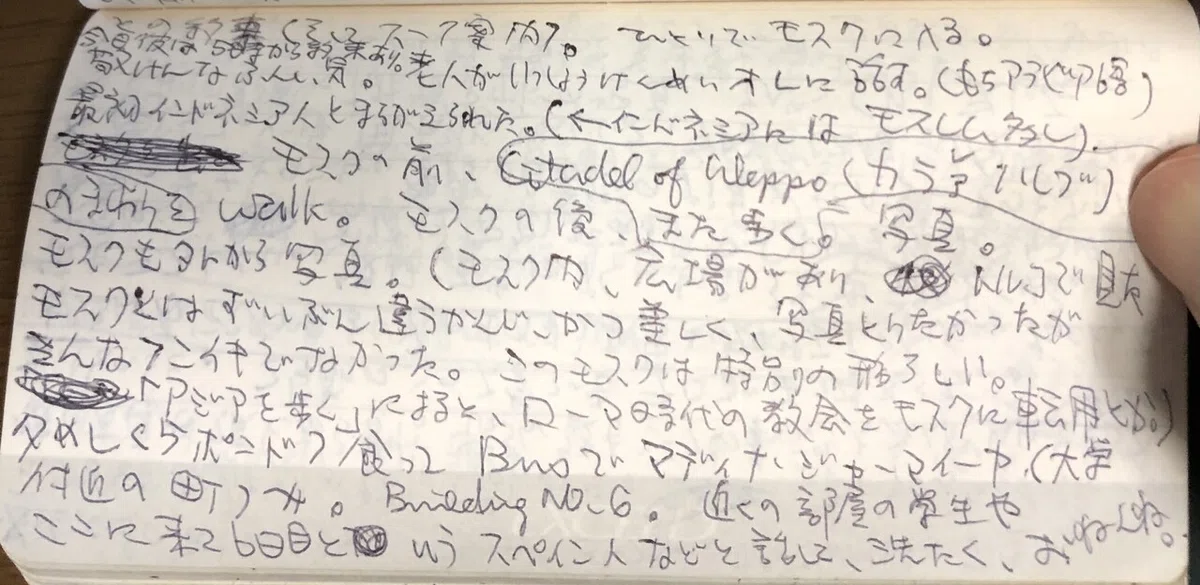 モスク案内。ひとりでモスクに入る。
5時から授業あり。
けんなふんい気。老人がいっしょうけんめいオレに話す。(もちアラビア語)
最初インドネシア人とまちがえられた。(←インドネシアにはモスレム多し)
モスクの前、Citadel of Aleppo (カラアハルブ)
のまわりをwalk。モスクの後、また歩く。写真。
モスクもヨルから写真。(モスク内、広場があり、トルコで見た
モスクとはずいぶん違うかんじ、かつ美しく、写真とりたかったが
そんなフンイキでなかった。このモスクは特別の形らしい。
「アジアを歩く」によると、ローマ時代の教会をモスクに転用とか。)
夕めしくらポンド7食ってBusでマディナ・ジャーマイーヤ(大学
付近の町)へ。Building No.6。近くの部屋の学生や
ここに来て6日目というスペイン人などと話して、洗たく、おねんね。